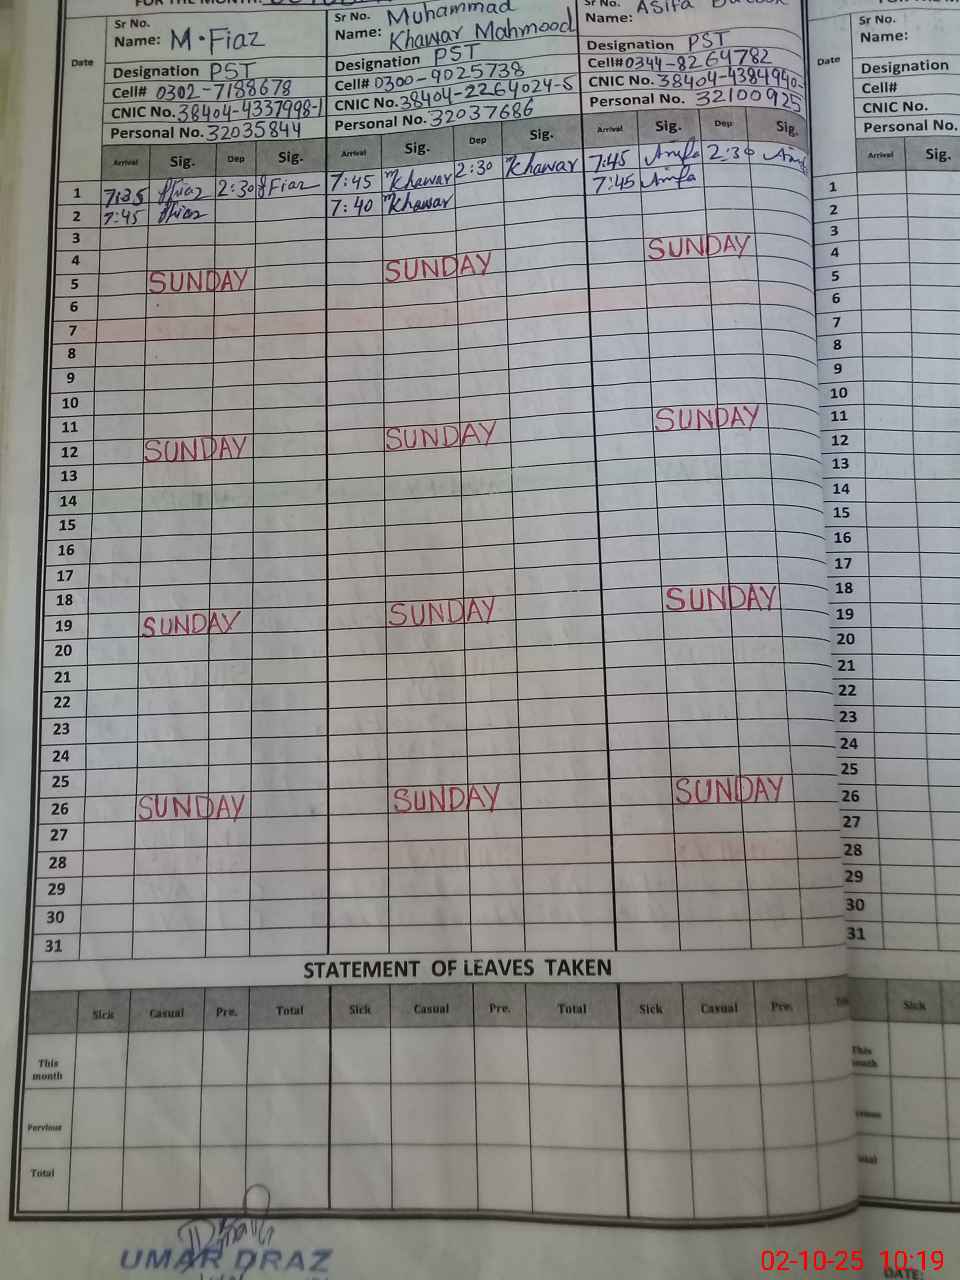 FOR THE MONTH:
Date
Sr No.
Name: M.Fiaz
Designation PST
Cell# 0302-7188678
CNIC No. 38404-4337998-1
Personal No. 32035844
Sr No. Muhammad
Name: Khawar Mahmood
Designation PST
Cell# 0300-9025738
CNIC No. 38404-2264024-5
Personal No. 32037686
Sr No. Asifa
Name:
Designation PST
Cell# 0344-8264782
CNIC No. 38404-4384940-
Personal No. 32100925
Date
Sr No.
Name:
Designation
Cell#
CNIC No.
Personal No.
Arrival Sig. Dep Sig. Arrival Sig. Dep Sig. Arrival Sig. Dep Sig. Arrival Sig.
1 7:35 Fiaz 2:30 Fiaz 7:45 Khawar 2:30 Khawar 7:45 Asifa 2:30 Asifa 1
2 7:45 Fiaz 7:40 Khawar 7:45 Asifa 2
3 3
4 4
5 SUNDAY SUNDAY SUNDAY 5
6 6
7 7
8 8
9 9
10 10
11 11
12 SUNDAY SUNDAY SUNDAY 12
13 13
14 14
15 15
16 16
17 17
18 18
19 SUNDAY SUNDAY SUNDAY 19
20 20
21 21
22 22
23 23
24 24
25 25
26 SUNDAY SUNDAY SUNDAY 26
27 27
28 28
29 29
30 30
31 31
STATEMENT OF LEAVES TAKEN
Sick Casual Pre. Total Sick Casual Pre. Total Sick Casual Pre. Sick
This month
Pervious
Total
UMAR DRAZ
DATE:
02-10-25 10:19